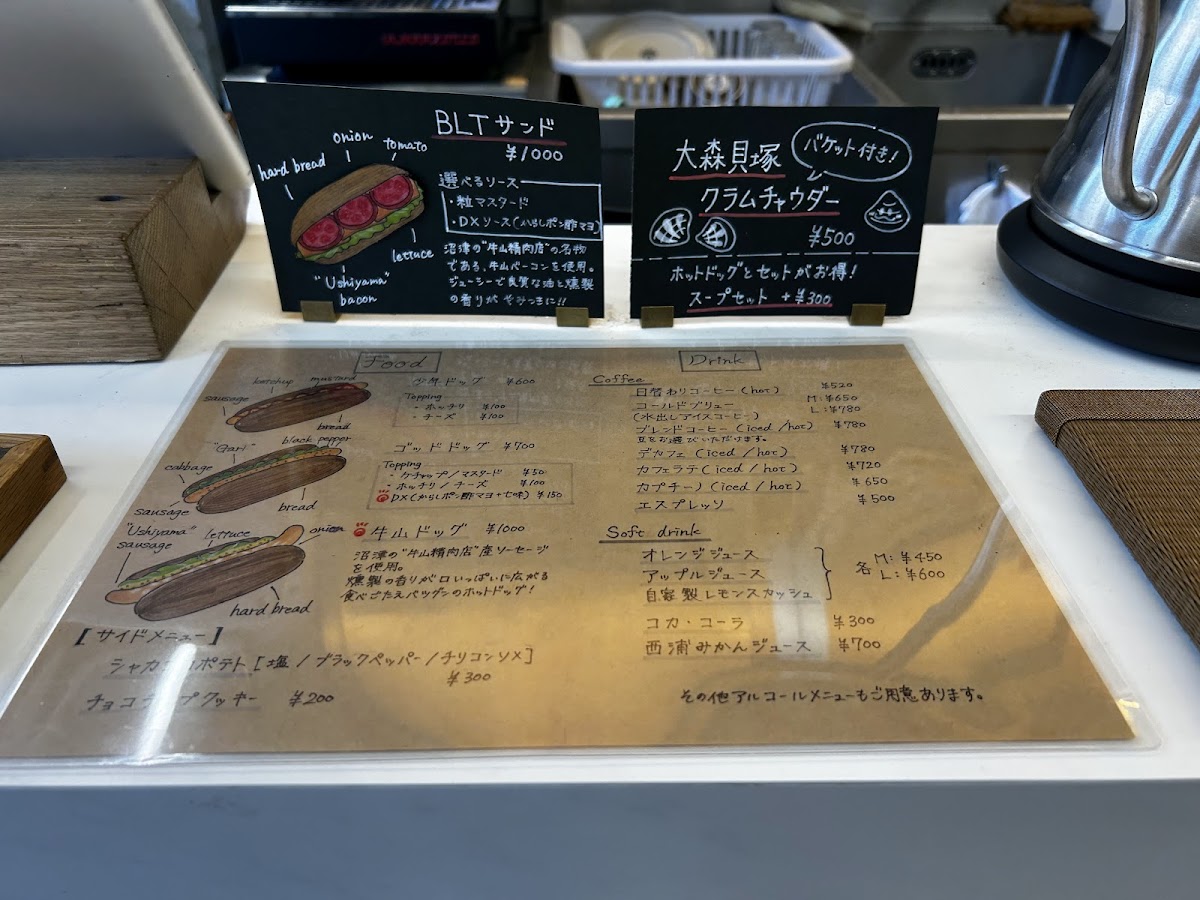 BLTサンド
¥1000
onion
tomato
hard bread
lettuce
"Ushiyama"
bacon
選べるソース
・粒マスタード
・DXソース(からしポン酢マヨ)
沼津の"牛山精肉店"の名物
である、牛山ベーコンを使用。
ジューシーで良質な油と燻製
の香りがやみつきに!!
大森貝塚
クラムチャウダー
バケット付き!
¥500
ホットドッグとセットがお得!
スープセット +¥300
Food
ketchup
mustard
sausage
bread
少年ドッグ ¥600
Topping
・ホッチリ ¥100
・チーズ ¥100
"Gari"
black pepper
cabbage
sausage
bread
ゴッドドッグ ¥700
Topping
・ケチャップ/マスタード ¥50
・ホッチリ/チーズ ¥100
DX(からしポン酢マヨ+七味) ¥150
"Ushiyama"
sausage
lettuce
onion
hard bread
牛山ドッグ ¥1000
沼津の"牛山精肉店"産ソーセージ
を使用。
燻製の香りが口いっぱいに広がる
食べごたえバツグンのホットドッグ!
【サイドメニュー】
シャカシャカポテト[塩/ブラックペッパー/チリコンソメ]
¥300
チョコチップクッキー ¥200
Drink
Coffee
日替わりコーヒー(hot) ¥520
コールドブリュー M:¥650
(水出しアイスコーヒー) L:¥780
ブレンドコーヒー(iced/hot) ¥780
豆をお選びいただけます。
デカフェ(iced/hot) ¥780
カフェラテ(iced/hot) ¥720
カプチーノ(iced/hot) ¥650
エスプレッソ ¥500
Soft drink
オレンジジュース
アップルジュース
自家製レモンスカッシュ
各 M:¥450
L:¥600
コカ・コーラ ¥300
西浦みかんジュース ¥700
その他アルコールメニューもご用意あります。